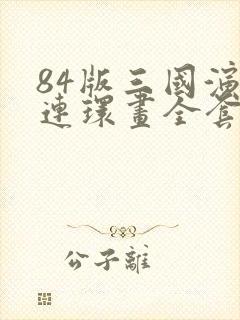 84版三國演
連環畫全套
公子離